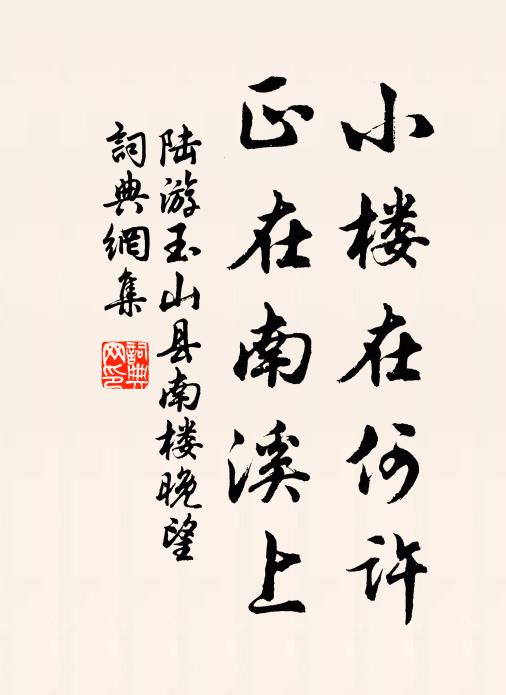 小楼在何许
正在南溪上
陆游玉山县南楼晚望
詞典網集
詞典网印